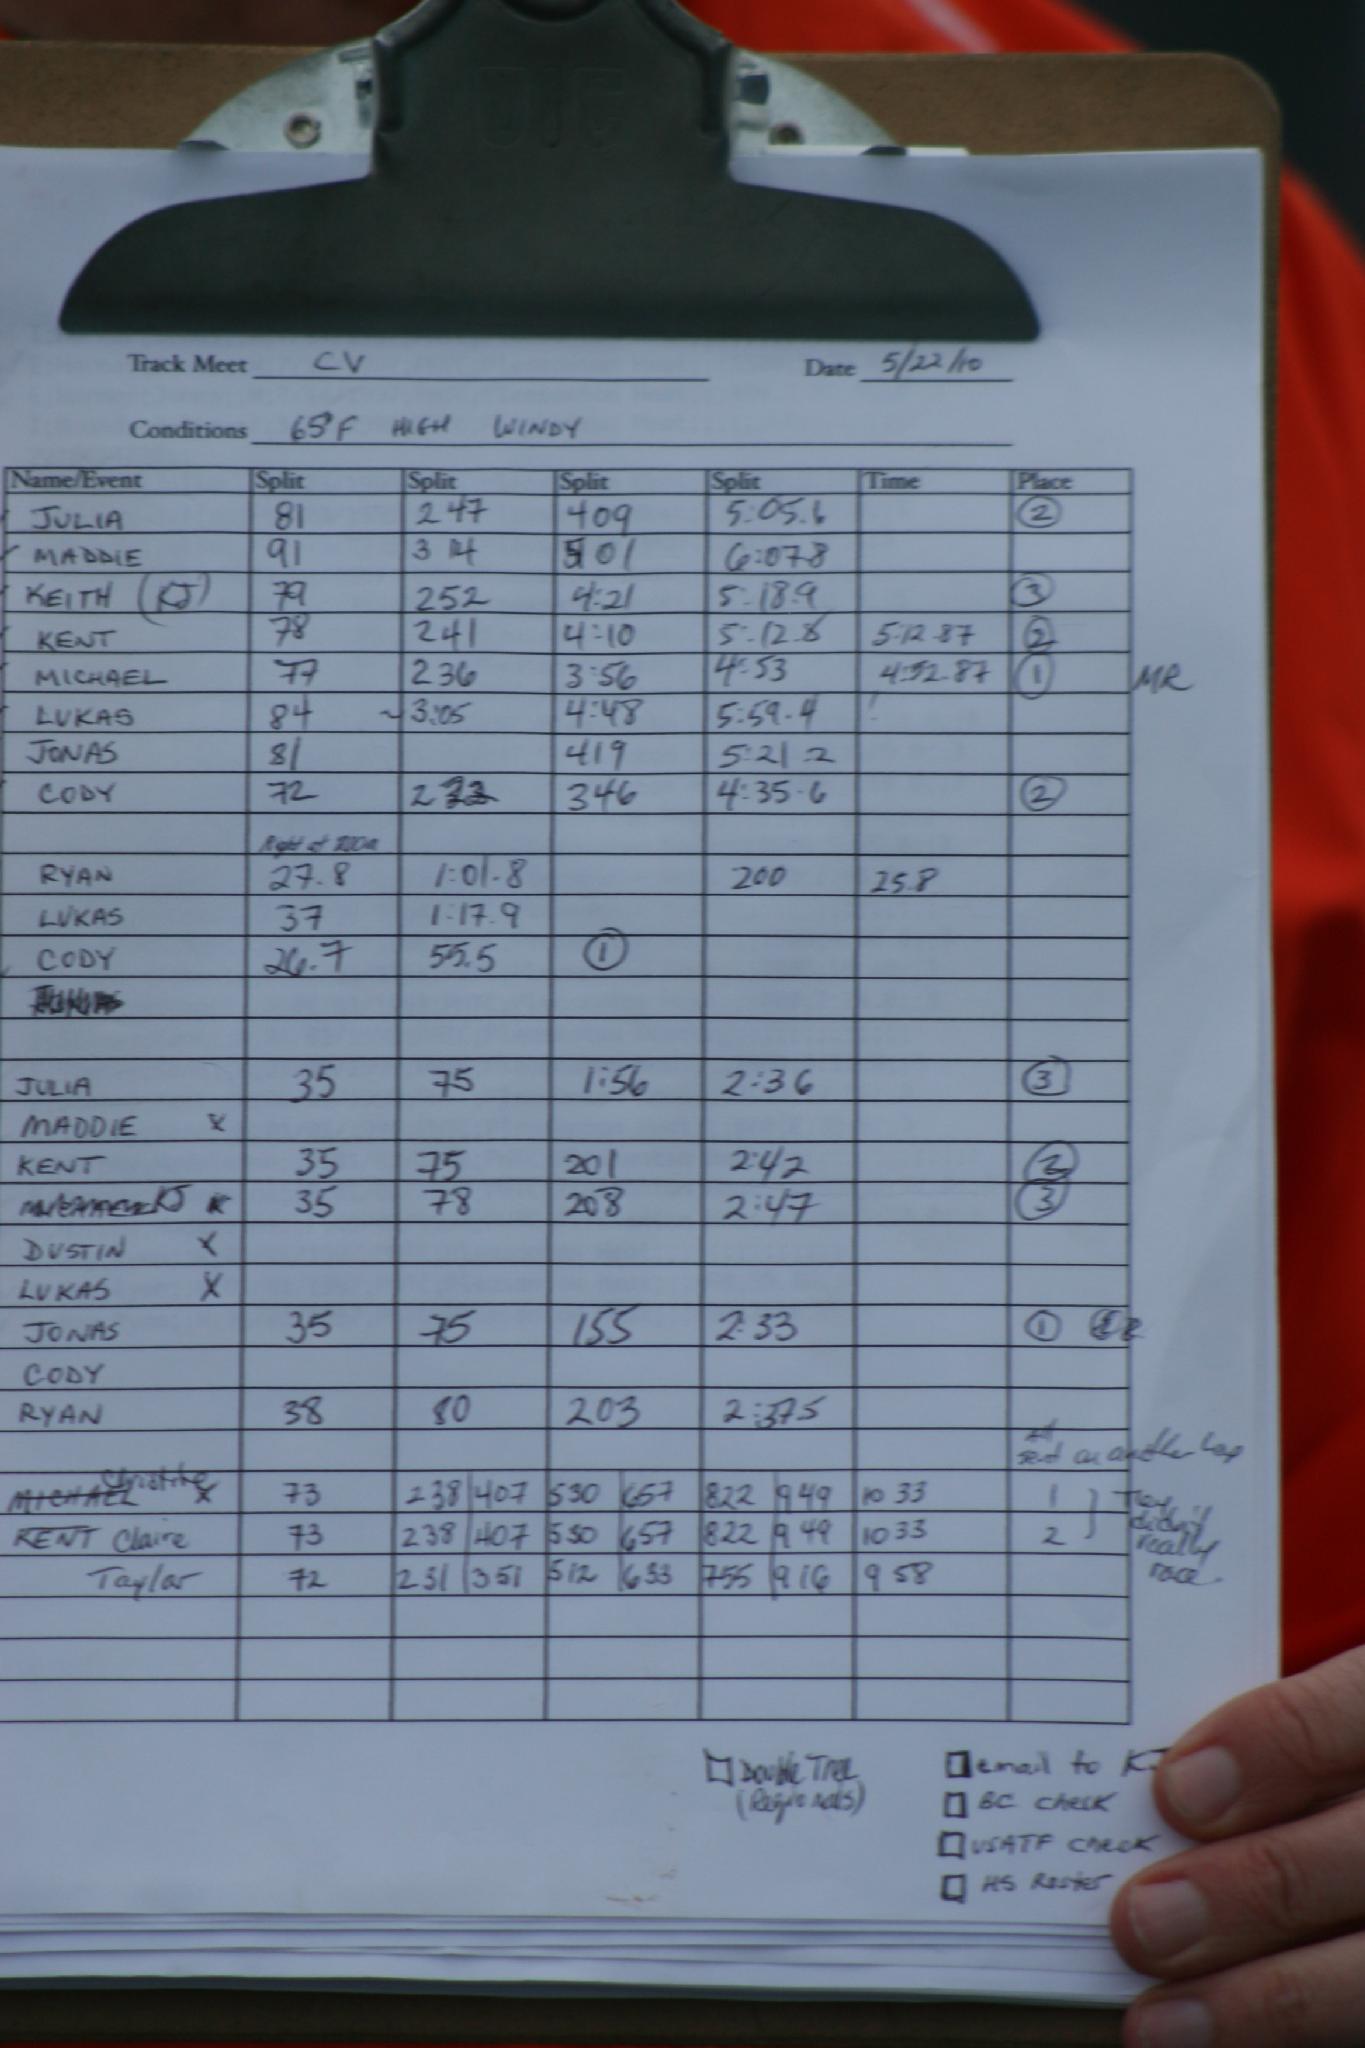 UIC
Track Meet CV Date 5/22/10
Conditions 65°F HIGH WINDY
Name/Event Split Split Split Split Time Place
JULIA 81 247 409 5:05.6 2
MADDIE 91 314 501 6:07.8
KEITH (KJ) 79 252 4:21 5:18.9 3
KENT 78 241 4:10 5:12.8 5:12.87 2
MICHAEL 77 236 3:56 4:53 4:52.87 1 MR
LUKAS 84 ~3:05 4:48 5:59.4
JONAS 81 419 5:21.2
CODY 72 2 346 4:35.6 2
Right at 200m
RYAN 27.8 1:01.8 200 25.8
LUKAS 37 1:17.9
CODY 26.7 55.5 1
JULIA 35 75 1:56 2:36 3
MADDIE X
KENT 35 75 201 2:42 2
KJ 35 78 208 2:47 3
DUSTIN X
LUKAS X
JONAS 35 75 155 2:33 1
CODY
RYAN 38 80 203 2:37.5
sent on another lap
MICHAEL Christine X 73 238 407 530 657 822 949 1033 1 They
KENT Claire 73 238 407 530 657 822 949 1033 2 didn't really
Taylor 72 231 351 512 633 755 916 958 race.
Double Tree
(Regionals)
email to KJ
BC CHECK
USATF CHECK
HS Roster